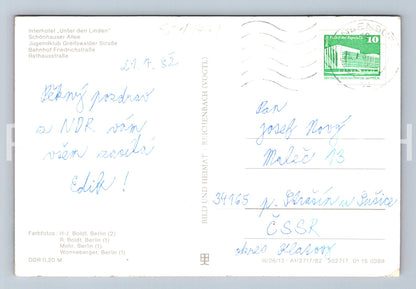 Interhotel „Unter den Linden"
Schönhauser Allee
Jugendklub Greifswalder Straße
Bahnhof Friedrichstraße
Rathausstraße
21.7.82
Pěkný pozdrav
z NDR vám
všem zasílá
Edik!
Farbfotos: H.-J. Boldt, Berlin (2)
R. Boldt, Berlin (1)
Mohr, Berlin (1)
Wonneberger, Berlin (1)
DDR 0,20 M
BILD UND HEIMAT REICHENBACH (VOGTL)
10
Pan
Josef Nový
Maleč 13
34165 p. Strašín u Sušice
ČSSR
okres Klatovy